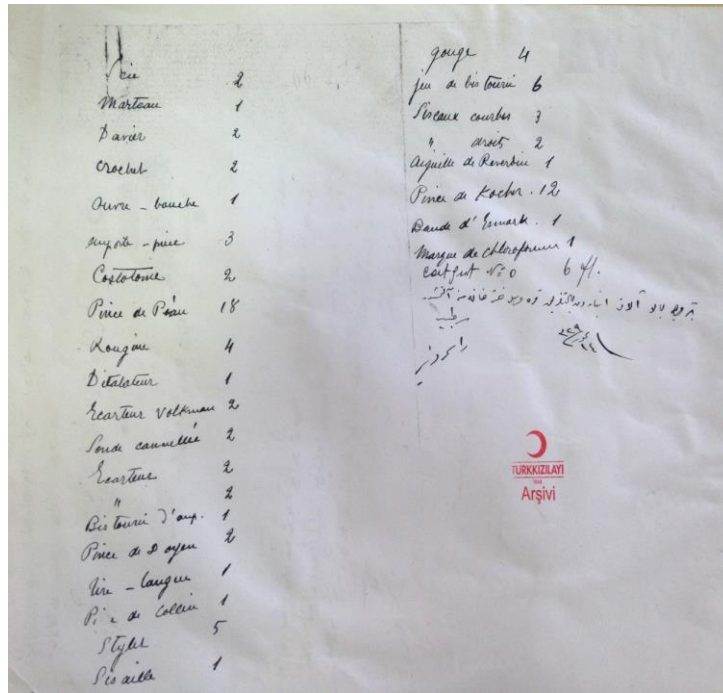 Scie 2
Marteau 1
Davier 2
Crochet 2
Ouvre - bouche 1
emporte - pièce 3
Costotome 2
Pince de Péan 18
Rougine 4
Dilalateur 1
Ecarteur Volkman 2
Sonde cannellée 2
Ecarteur 2
" 2
Bistouri d'amp. 1
Pince de Doyen 2
tire - langue 1
de Collin 1
Stylet 5
Sisaille 1
gouge 4
jeu de bistouri 6
Siseaux courbes 3
" droits 2
Aiguille de Reverdin 1
Pince de Kocher . 12
Bande d'Esmark . 1
Masque de chloroforme 1
Catgut No 0 6 fl.
TURKKIZILAYI
Arşivi